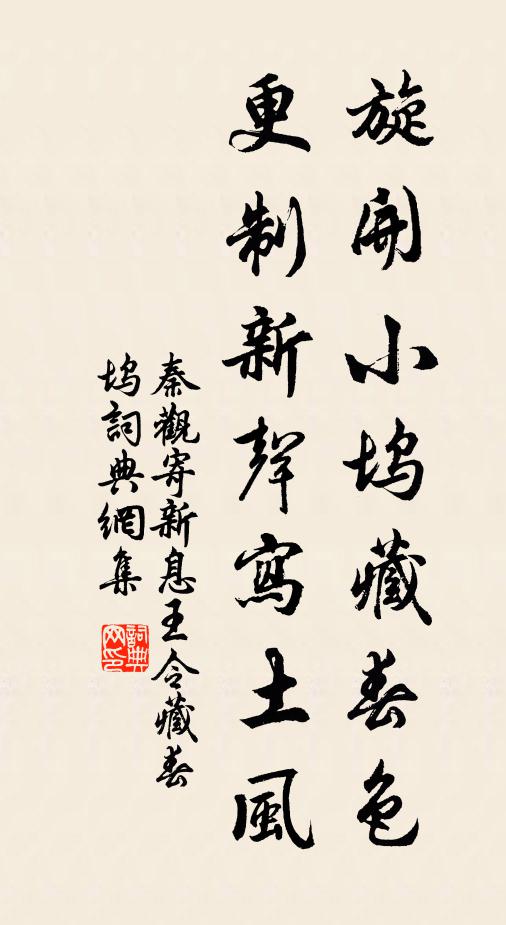 旋開小塢藏春色
更制新聲寫土風
秦觀寄新息王令藏春
塢詞典網集
詞典
网印